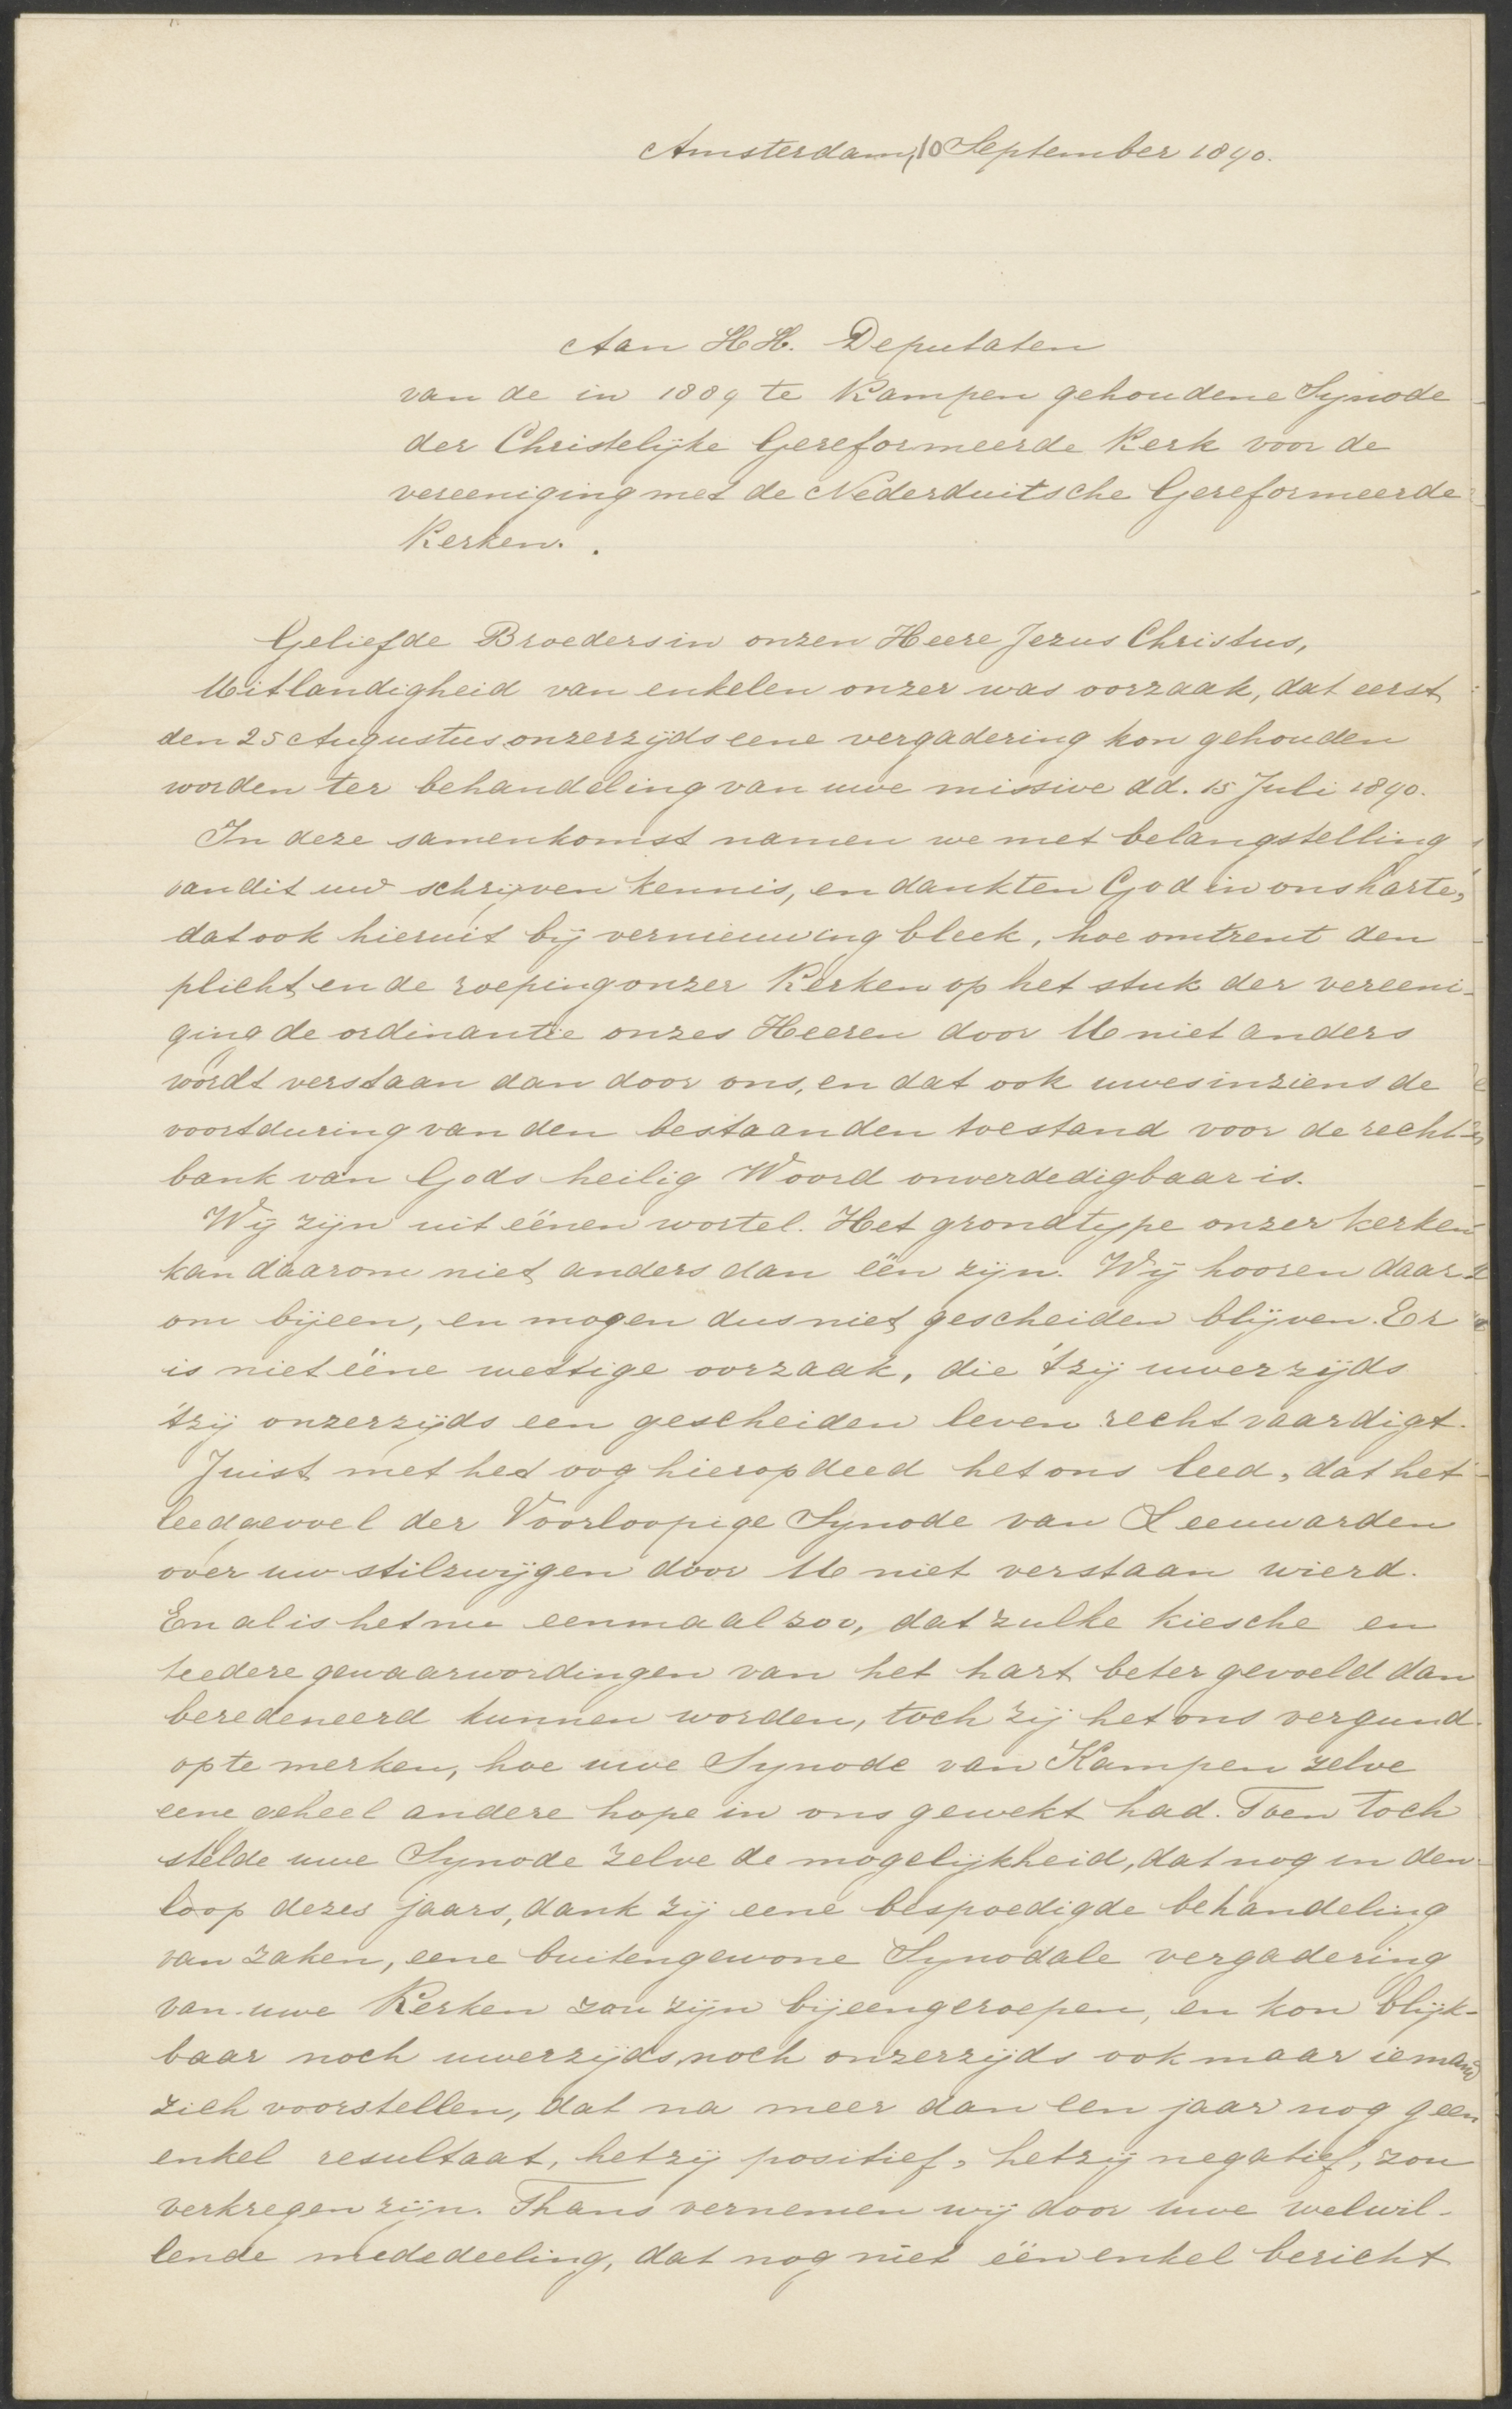 Amsterdam, 10 September 1890.
Aan HH. Deputaten
van de in 1889 te Kampen gehoudene Synode
der Christelijke Gereformeerde Kerk voor de
vereeniging met de Nederduitsche Gereformeerde
Kerken.
Geliefde Broeders in onzen Heere Jezus Christus,
Uitlandigheid van enkelen onzer was oorzaak, dat eerst
den 25 Augustus onzerzijds eene vergadering kon gehouden
worden ter behandeling van uwe missive dd. 15 Juli 1890.
In deze samenkomst namen we met belangstelling
van dit uw schrijven kennis, en dankten God in ons harte,
dat ook hieruit bij vernieuwing bleek, hoe omtrent den
plicht en de roeping onzer Kerken op het stuk der vereeni-
ging de ordinantie onzes Heeren door U niet anders
wordt verstaan dan door ons, en dat ook uwes inziens de
voortduring van den bestaanden toestand voor de recht-
bank van Gods heilig Woord onverdedigbaar is.
Wij zijn uit éénen wortel. Het grondtype onzer kerken
kan daarom niet anders dan één zijn. Wij hooren daar-
om bijeen, en mogen dus niet gescheiden blijven. Er
is niet ééne wettige oorzaak, die 'tzij uwerzijds
'tzij onzerzijds een gescheiden leven rechtvaardigt.
Juist met het oog hierop deed het ons leed, dat het
leedgevoel der Voorloopige Synode van Leeuwarden
over uw stilzwijgen door U niet verstaan wierd.
En al is het nu eenmaal zoo, dat zulke kiesche en
teedere gewaarwordingen van het hart beter gevoeld dan
beredeneerd kunnen worden, toch zij het ons vergund
op te merken, hoe uwe Synode van Kampen zelve
eene geheel andere hope in ons gewekt had. Toen toch
stelde uwe Synode zelve de mogelijkheid, dat nog in den
loop dezes jaars, dank zij eene bespoedigde behandeling
van zaken, eene buitengewone Synodale vergadering
van uwe Kerken zou zijn bijeengeroepen, en kon blijk-
baar noch uwerzijds, noch onzerzijds ook maar iemand
zich voorstellen, dat na meer dan een jaar nog geen
enkel resultaat, hetzij positief, hetzij negatief, zou
verkregen zijn. Thans vernemen wij door uwe welwil-
lende mededeeling, dat nog niet één enkel bericht